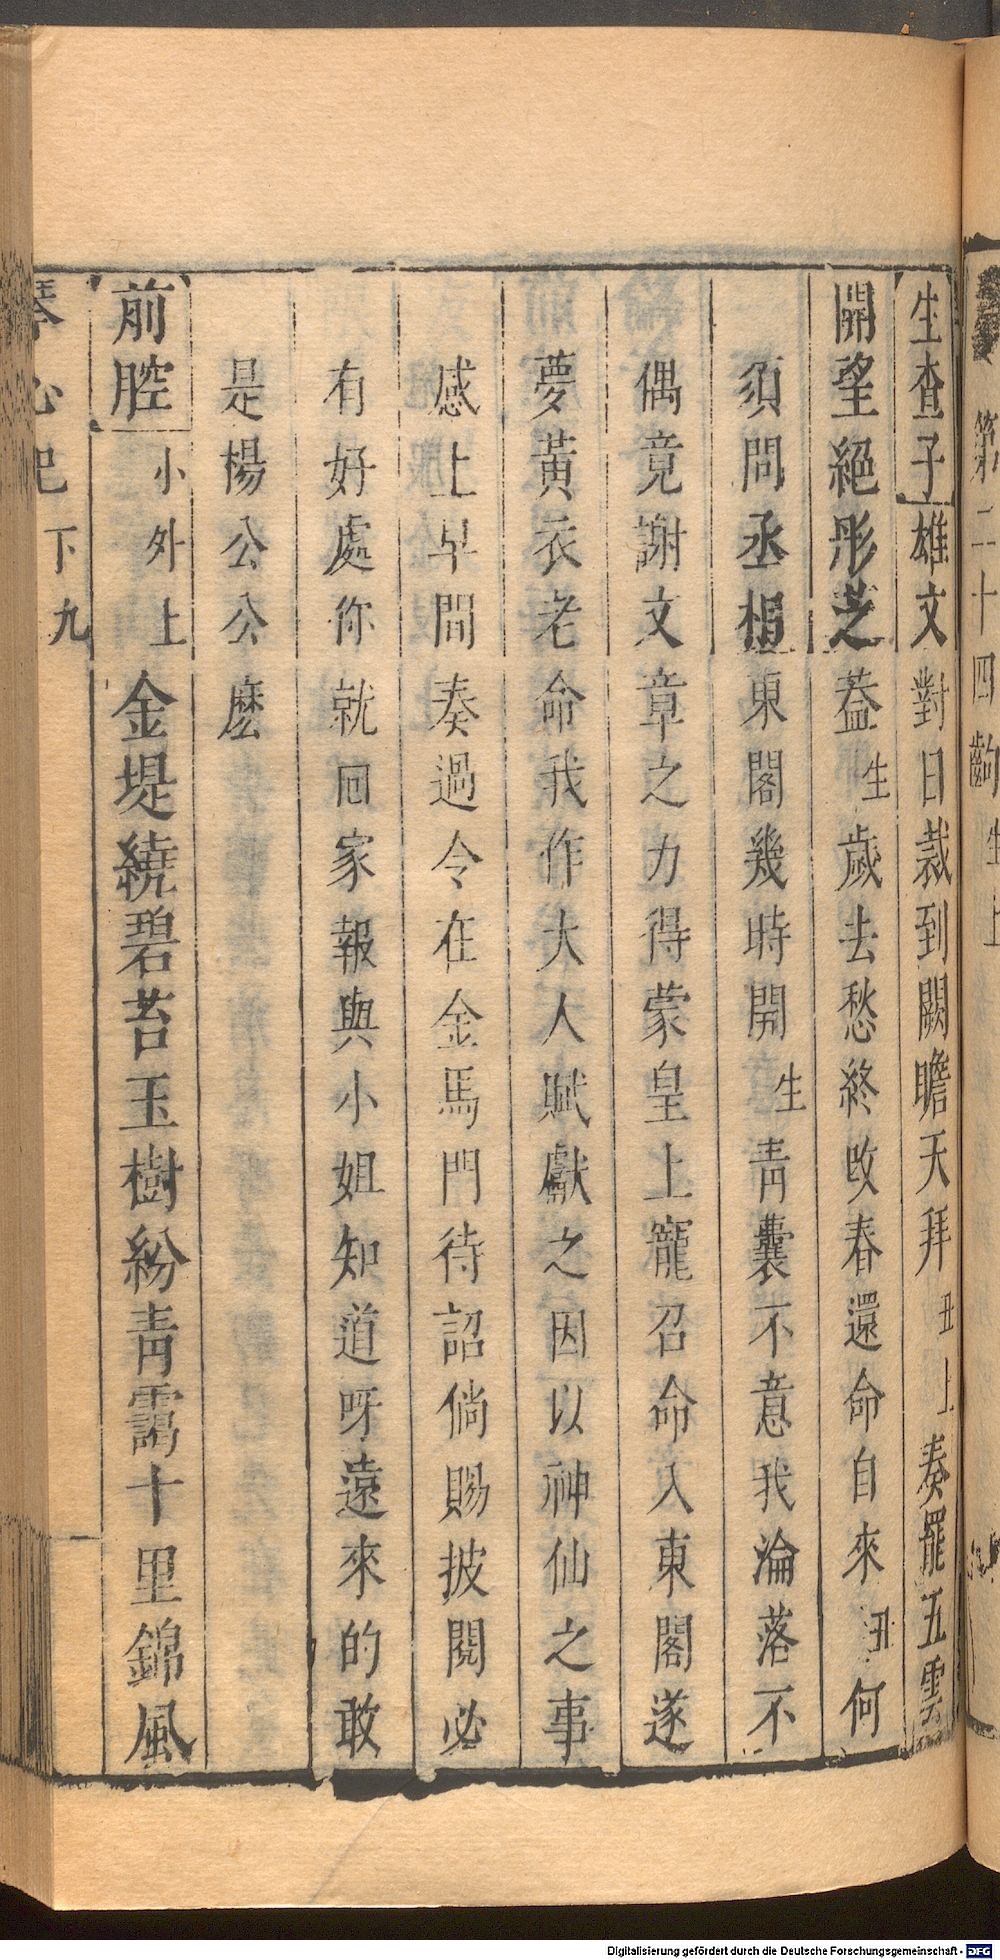 第二十四齣 生上
生查子 雄文對日裁到闕瞻天拜 丑上 奏罷五雲
開望絕彤芝葢 生 歲去愁終改春還命自來 丑 何
須問丞相東閣幾時開 生 靑囊不意我淪落不
偶竟謝文章之力得蒙皇上寵召命入東閣遂
夢黃衣老命我作大人賦獻之因以神仙之事
感上早間奏過令在金馬門待詔倘賜披閱必
有好處你就回家報與小姐知道呀遠來的敢
是楊公公麽
前腔 小外上 金堤繞碧苔玉樹紛靑靄十里錦風
琴心記 下 九
Digitalisierung gefördert durch die Deutsche Forschungsgemeinschaft - DFG